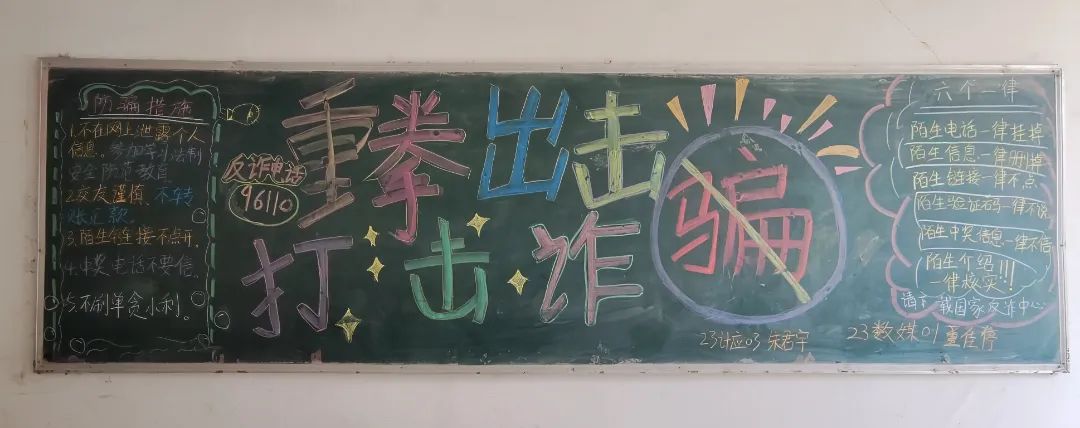 防骗措施
1.不在网上泄露个人
信息。参加学习法制
安全防范教育
2.交友谨慎、不转
账汇款。
3.陌生链接不点开。
4.中奖电话不要信。
5.不刷单贪小利。
反诈电话
96110
重拳出击
打击诈骗
六个一律
陌生电话一律挂掉
陌生信息一律删掉
陌生链接一律不点
陌生验证码一律不说
陌生中奖信息一律不信
陌生介绍
一律核实!!!
请下载国家反诈中心
23计应03 朱君宇
23数媒01